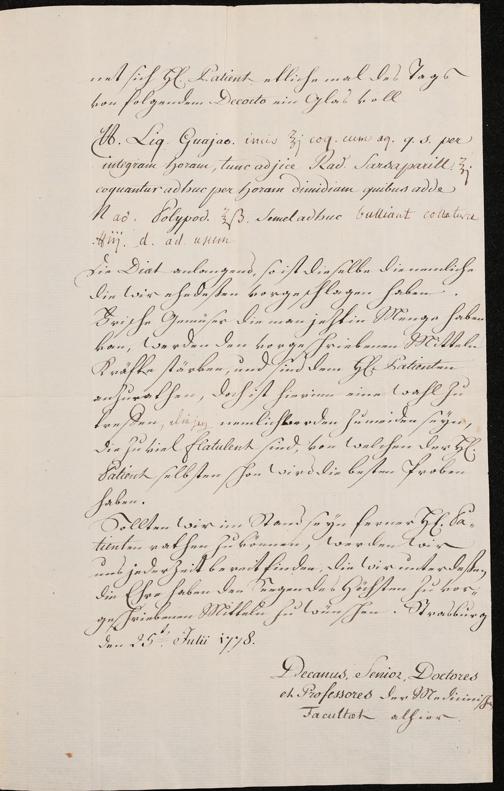 net sich H. Patient etliche mal des Tags
von folgendem Decocto ein Glas voll
Rx. Lig. Guajac. incis ℥j coq. cum aq. q. s. per
integram horam, tunc adjice Rad. Sarsaparill. ℥j
coquantur adhuc per horam dimidiam quibus adde
Rad. Polypod. ℥ß. Semel adhuc bulliant colaturae
d. ad usum
Die Diät anlangend, so ist dieselbe die nemliche
die wir ehedessen vorgeschlagen haben.
Frische Gemüser die man jetzt in Menge haben
kan, werden den vorgeschriebenen Mitteln
Kräfte stärken, und sind dem H. Patienten
anzurathen, doch ist hierinn eine Wahl zu
treffen, diejen nemlich werden zu meiden seyn,
die zu viel flatulent sind, von welchen der H.
Patient selbsten schon wird die besten Proben
haben.
Sollten wir im Stand seyn ferner H. Pa-
tienten rathen zu können, werden wir
uns jederzeit bereit finden, die wir unterdessen
die Ehre haben den Seegen des Höchsten zu vor-
geschriebenen Mitteln zu wünschen. Strasburg
den 25. Julii 1778.
Decanus, Senior, Doctores
et Professores der Medicinisch
Facultæt alhier.